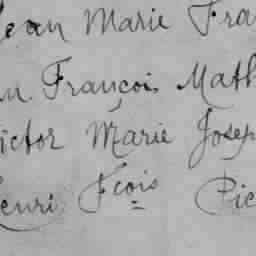 Jean Marie Fra
François Math
ictor Marie Josep
enri Fcois Pie